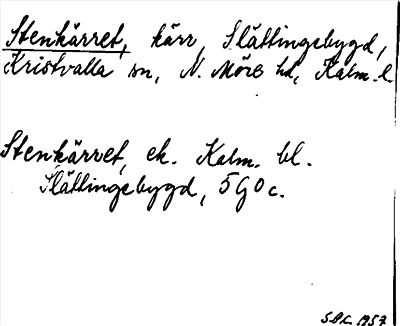 Stenkärret, kärr, Slättingebygd,
Kristvalla sn, N. Möre hd, Kalm. l.
Stenkärret, ek. Kalm. bl.
Slättingebygd, 5G0c.
1957